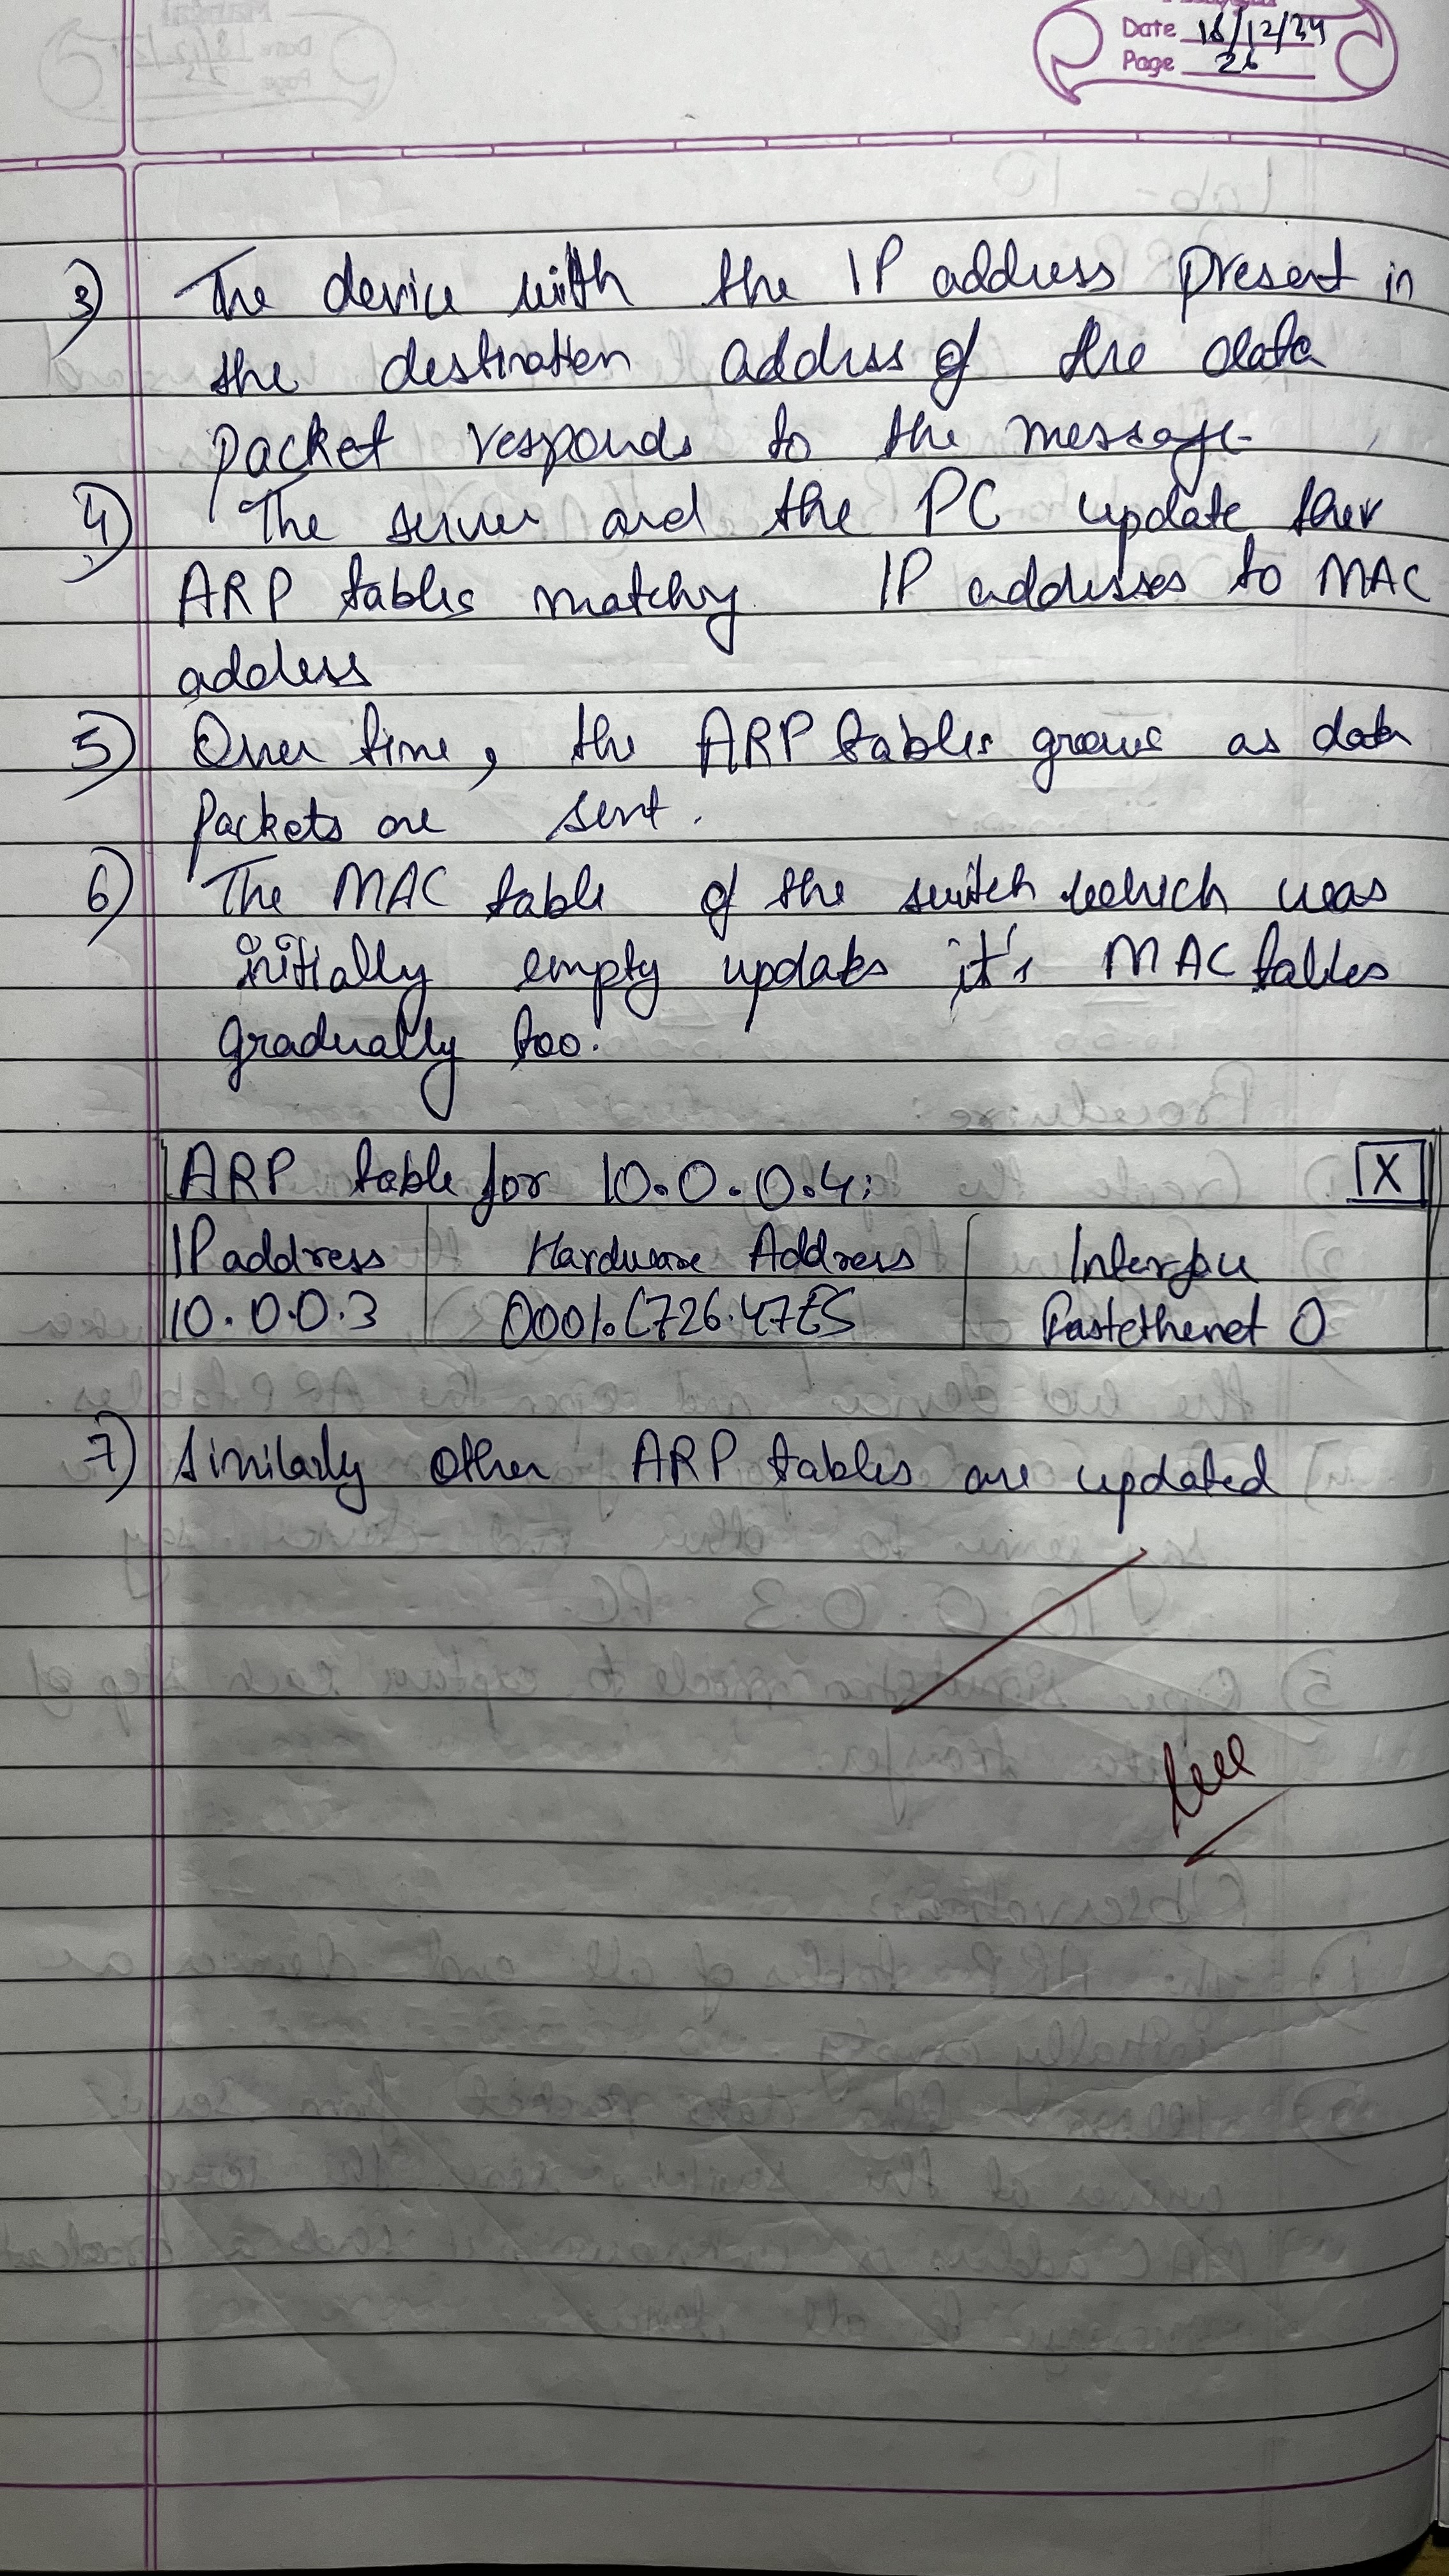 Date 18/12/24
Page 26
3) The device with the IP address present in
the destination address of the data
packet responds to the message
4) The server and the PC update their
ARP tables matching IP addresses to MAC
address
5) Over time, the ARP tables grows as data
packets are sent.
6) The MAC table of the switch which was
initially empty updates it's MAC tables
gradually too.
ARP table for 10.0.0.4: X
IP address Hardware Address Interface
10.0.0.3 0001.C726.47E5 Fastethernet 0
7) Similarly other ARP tables are updated